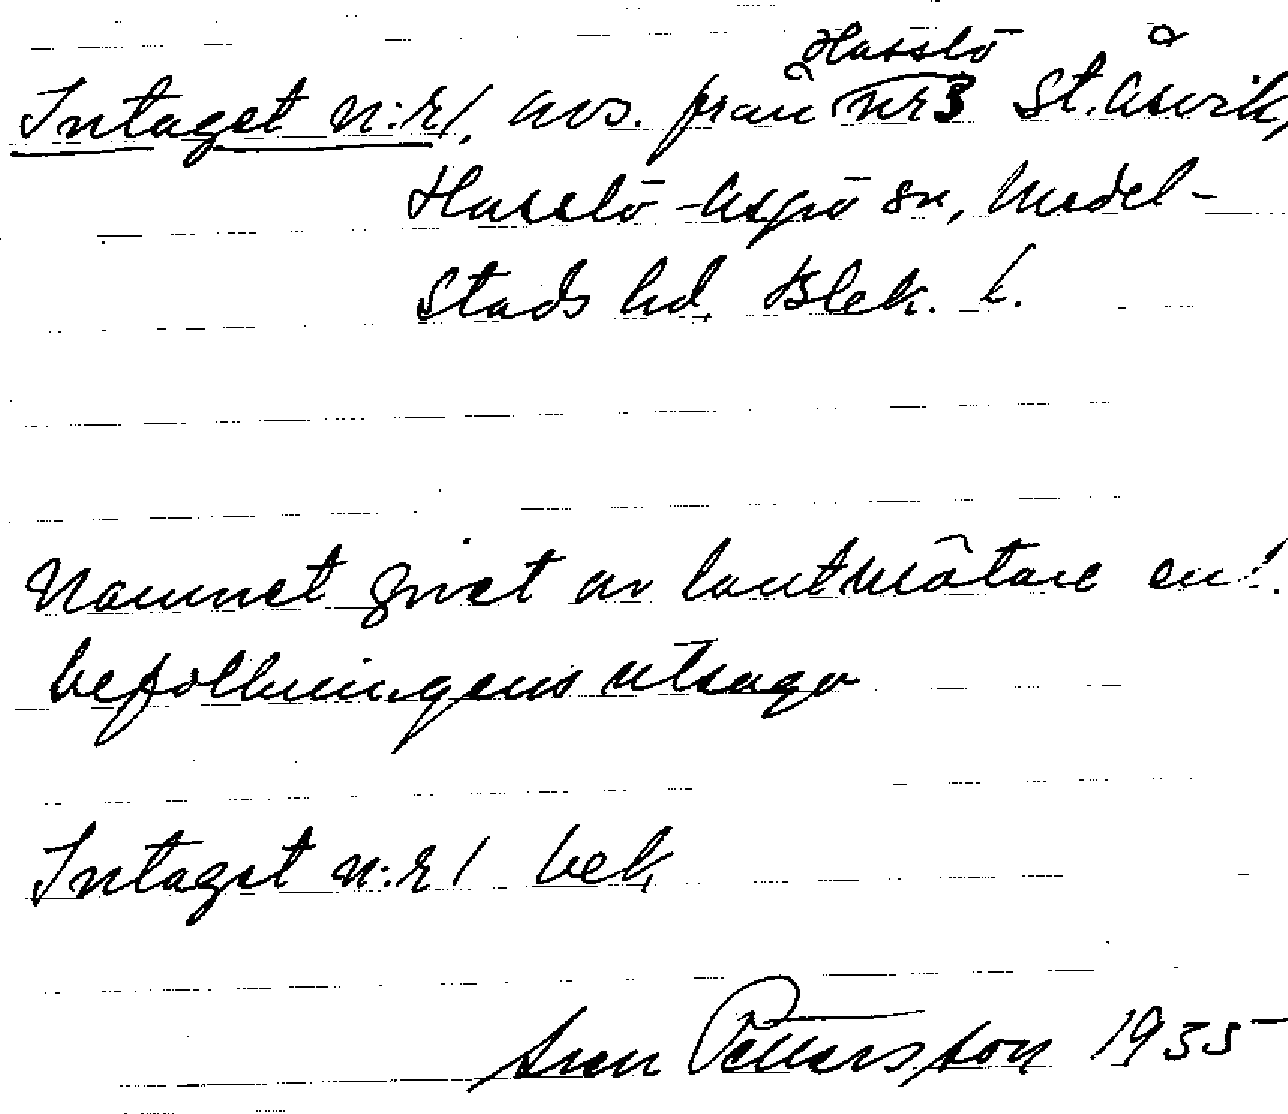 Hasslö
Intaget n:r 1, avs. från nr 3 St. Åsvik,
Hasslö-Aspö sn, Medel-
stads hd, Blek. l.
Namnet givet av lantmätare enl.
befolkningens utsago
Intaget n:r 1 bek
Sven Pettersson 1935